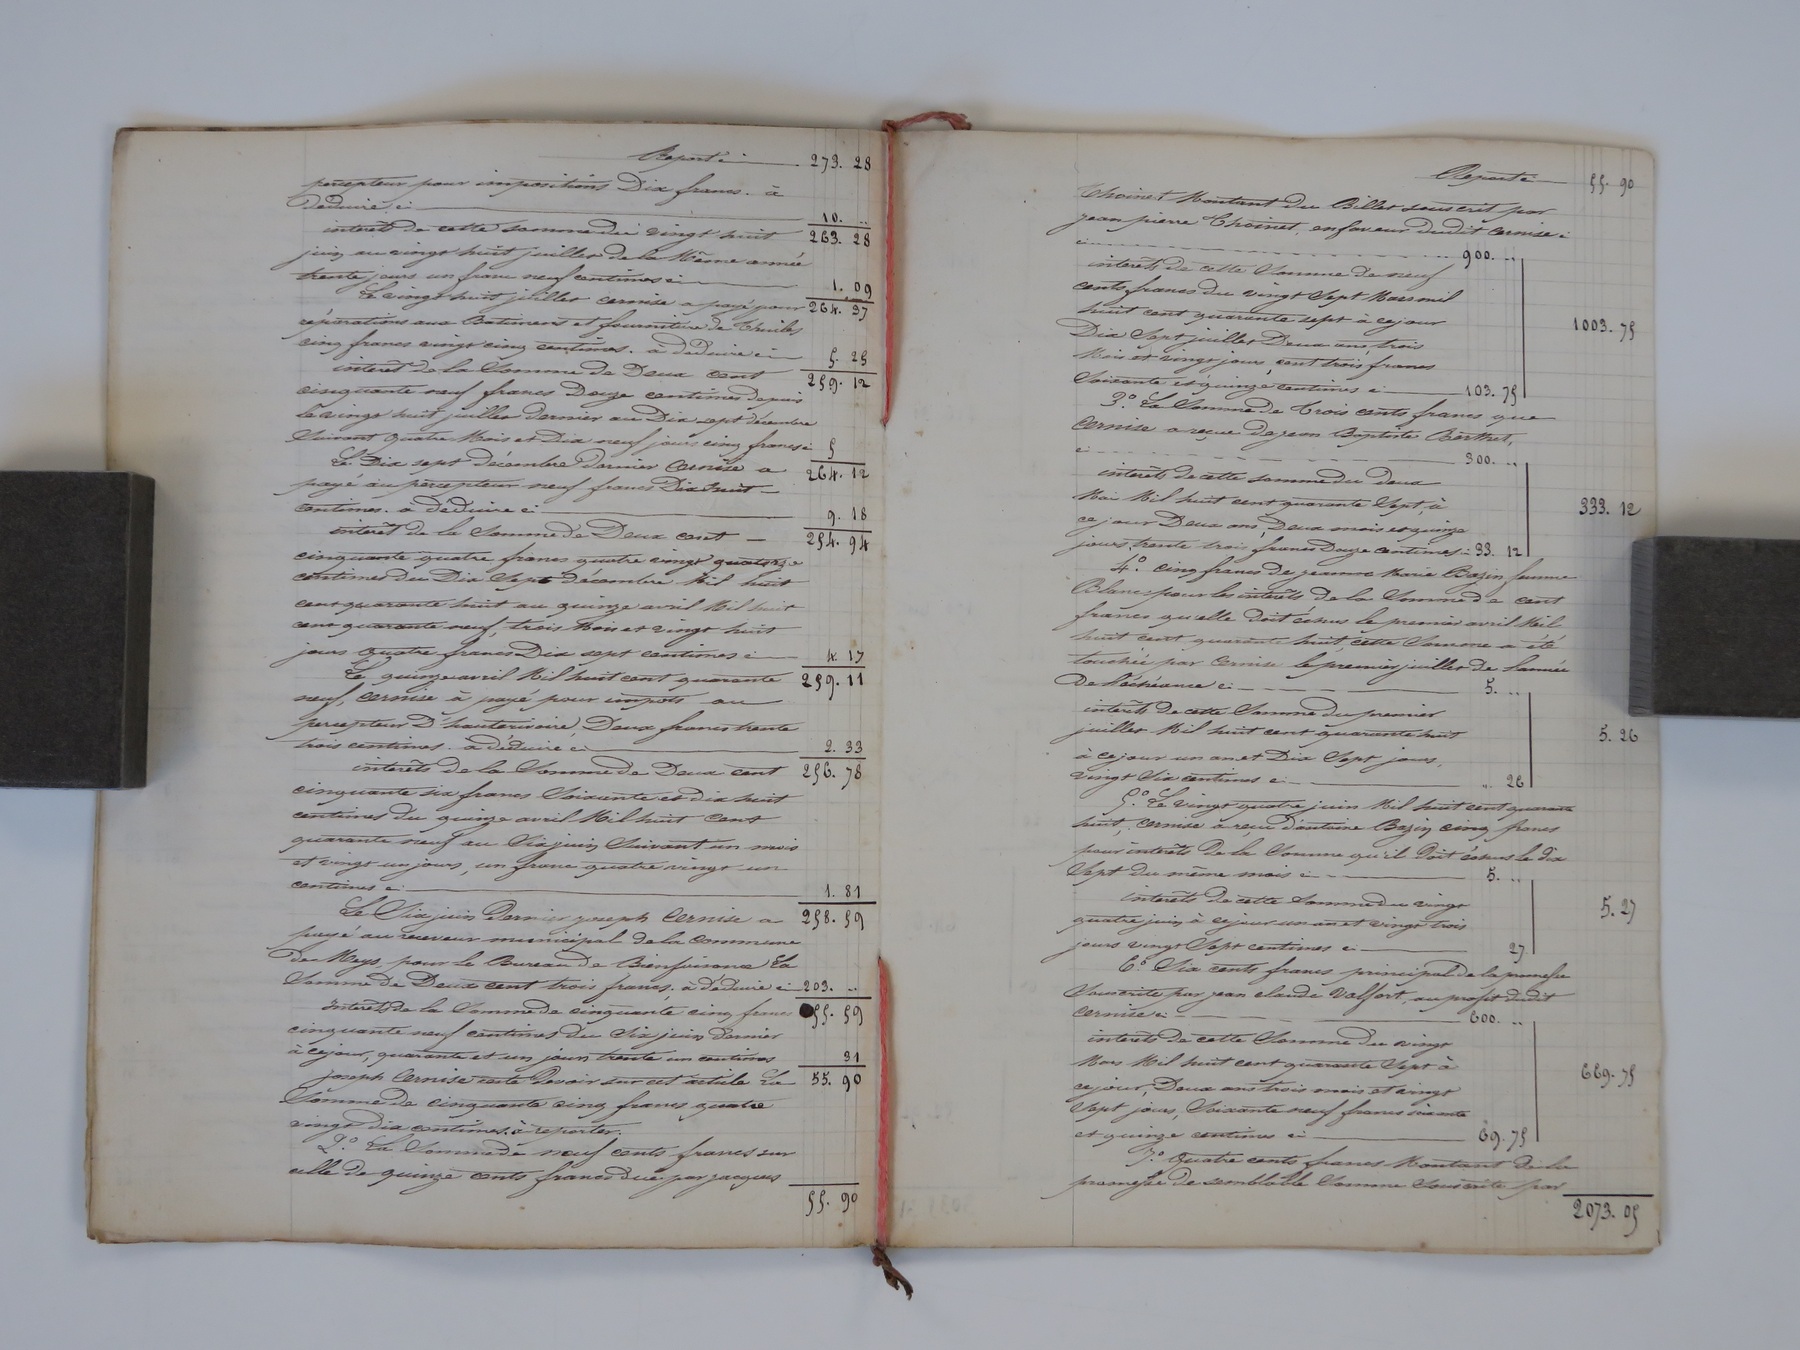 Report ci 273. 28
percepteur pour impositions Dix francs. à
déduire ci 10. "
263. 28
intérêts de cette somme du vingt huit
juin au vingt huit juillet de la Même année
trente jours un franc neuf centimes ci 1. 09
Le vingt huit juillet cernise a payé pour 264. 37
réparations aux Batiments et fourniture de Thuiles
cinq francs vingt cinq centimes. a déduire ci 5. 25
intérêt de la Somme de Deux cent 259. 12
cinquante neuf francs Douze centimes depuis
le vingt huit juillet dernier au Dix sept décembre
Suivant quatre Mois et Dix neuf jours cinq francs ci 5
Le Dix sept décembre dernier Cernise a 264. 12
payé au percepteur neuf francs Dix huit
centimes. a déduire ci 9. 18
intérêt de la Somme de Deux cent 254. 94
cinquante quatre francs quatre vingt quatorze
centimes du Dix Sept décembre Mil huit
cent quarante huit au quinze avril Mil huit
cent quarante neuf, trois Mois et vingt huit
jours quatre francs Dix sept centimes ci 4. 17
Le quinze avril Mil huit cent quarante 259. 11
neuf, cernise à payé pour impots au
percepteur D' hauterivoire, Deux francs trente
trois centimes. a déduire ci 2. 33
intérêts de la Somme de Deux cent 256. 78
cinquante six francs Soixante et dix huit
centimes du quinze avril Mil huit cent
quarante neuf au Six juin Suivant un mois
et vingt un jours, un franc quatre vingt un
centimes ci 1. 81
Le Six juin Dernier joseph Cernise a 258. 59
payé au receveur municipal de la commune
de Meys, pour le Bureau de Bienfaisance La
Somme de Deux cent trois francs, à déduire ci 203. "
Intérêts de la Somme de cinquante cinq francs 55. 59
cinquante neuf centimes du Six juin dernier
à ce jour, quarante et un jours trente un centimes 31
joseph Cernise reste Devoir sur cet article La 55. 90
Somme de cinquante cinq francs quatre
vingt dix centimes, à reporter.
2.° La Somme de neuf cents francs sur
celle de quinze cents francs due par jacques
55. 90
Report ci 55. 90
Thoinet Montant du Billet souscrit par
jean pierre Thoinet, en faveur dudit cernise :
ci 900. "
intérêts de cette Somme de neuf
cents francs du vingt Sept Mars mil
huit cent quarante sept à ce jour 1003. 75
Dix Sept juillet Deux ans trois
Mois et vingt jours, cent trois francs
Soixante et quinze centimes ci 103. 75
3.° La Somme de trois cents francs que
Cernise a reçue de jean Baptiste Berthet,
ci 300. "
intérêts de cette somme du deux
Mai Mil huit cent quarante Sept, à 333. 12
ce jour Deux ans, Deux mois et quinze
jours, trente trois francs Douze centimes : 33. 12
4.° cinq francs de jeanne Marie Bazin femme
Blanc pour les intérêts de la Somme de cent
francs qu'elle doit échus le premier avril Mil
huit cent quarante huit, cette Somme a été
touchée par Cernise le premier juillet de l'année
de l'échéance ci 5. "
intérêts de cette Somme du premier
juillet Mil huit cent quarante huit 5. 26
à ce jour un an et Dix Sept jours,
vingt Six centimes ci ". 26
5.° Le vingt quatre juin Mil huit cent quarante
huit, cernise a reçu d'antoine Bazin cinq francs
pour intérêts de la Somme qu'il doit échus le dix
Sept du même mois ci 5. "
intérêts de cette Somme du vingt 5. 27
quatre juin à ce jour un an et vingt trois
jours vingt Sept centimes ci 27
6.° Six cents francs principal de la promesse
Souscrite par jean claude Valfort, au profit dudit
cernise ci 600. "
intérêts de cette Somme du vingt
Mars Mil huit cent quarante Sept à 669. 75
ce jour, Deux ans trois mois et vingt
Sept jours, Soixante neuf francs soixante
et quinze centimes ci 69. 75
7.° quatre cents francs Montant de la
promesse de semblable Somme Souscrite par
2073. 05